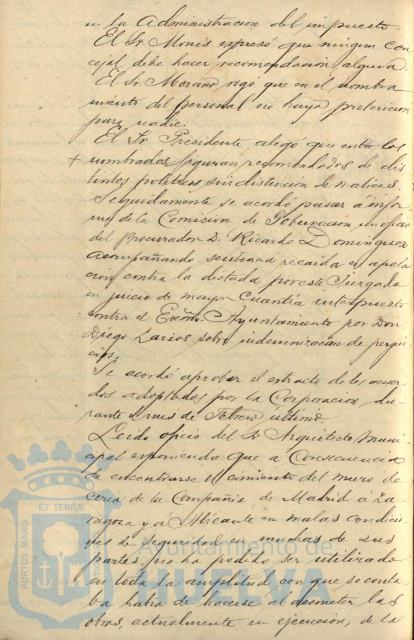 en la Administracion del impuesto.
El Sr. Monis expresó que ningun con-
cejal debe hacer recomendación alguna.
El Sr. Moreno rogó que en el nombra
miento del personal no haya pretericion
para nadie.
El Sr. Presidente, alegó que entre los
nombrados figuran recomendados de dis
tintos politicos sin distincion de matices.
Seguidamente se acordó pasar á infor
me de la Comision de Gobernación un oficio
del Procurador D. Ricardo Dominguez
acompañando sentencia recaida en apela
cion contra la dictada por este Juzgado
en juicio de mayor Cuantía interpuesto
contra el Excmo. Ayuntamiento por Don
Diego Larios sobre indemnizacion de perjui
cios.
Se acordó aprobar el extracto de los acuer
dos adoptados por la Corporacion, du-
rante el mes de Febrero último.
Leido oficio del Sr. Arquitecto Muni-
cipal exponiendo que a Consecuencia
de encontrarse el cimiento del muro de
cerca de la Compañia de Madrid á Za-
ragoza y á Alicante en malas condicio
nes de seguridad en muchas de sus
partes, no ha podido ser utilizado
en toda la amplitud con que se conta
ba habia de hacerse al acometer las
obras, actualmente en ejecucion, de la
PORTUS MARIS ET TERRAE
Ayuntamiento de
HUELVA